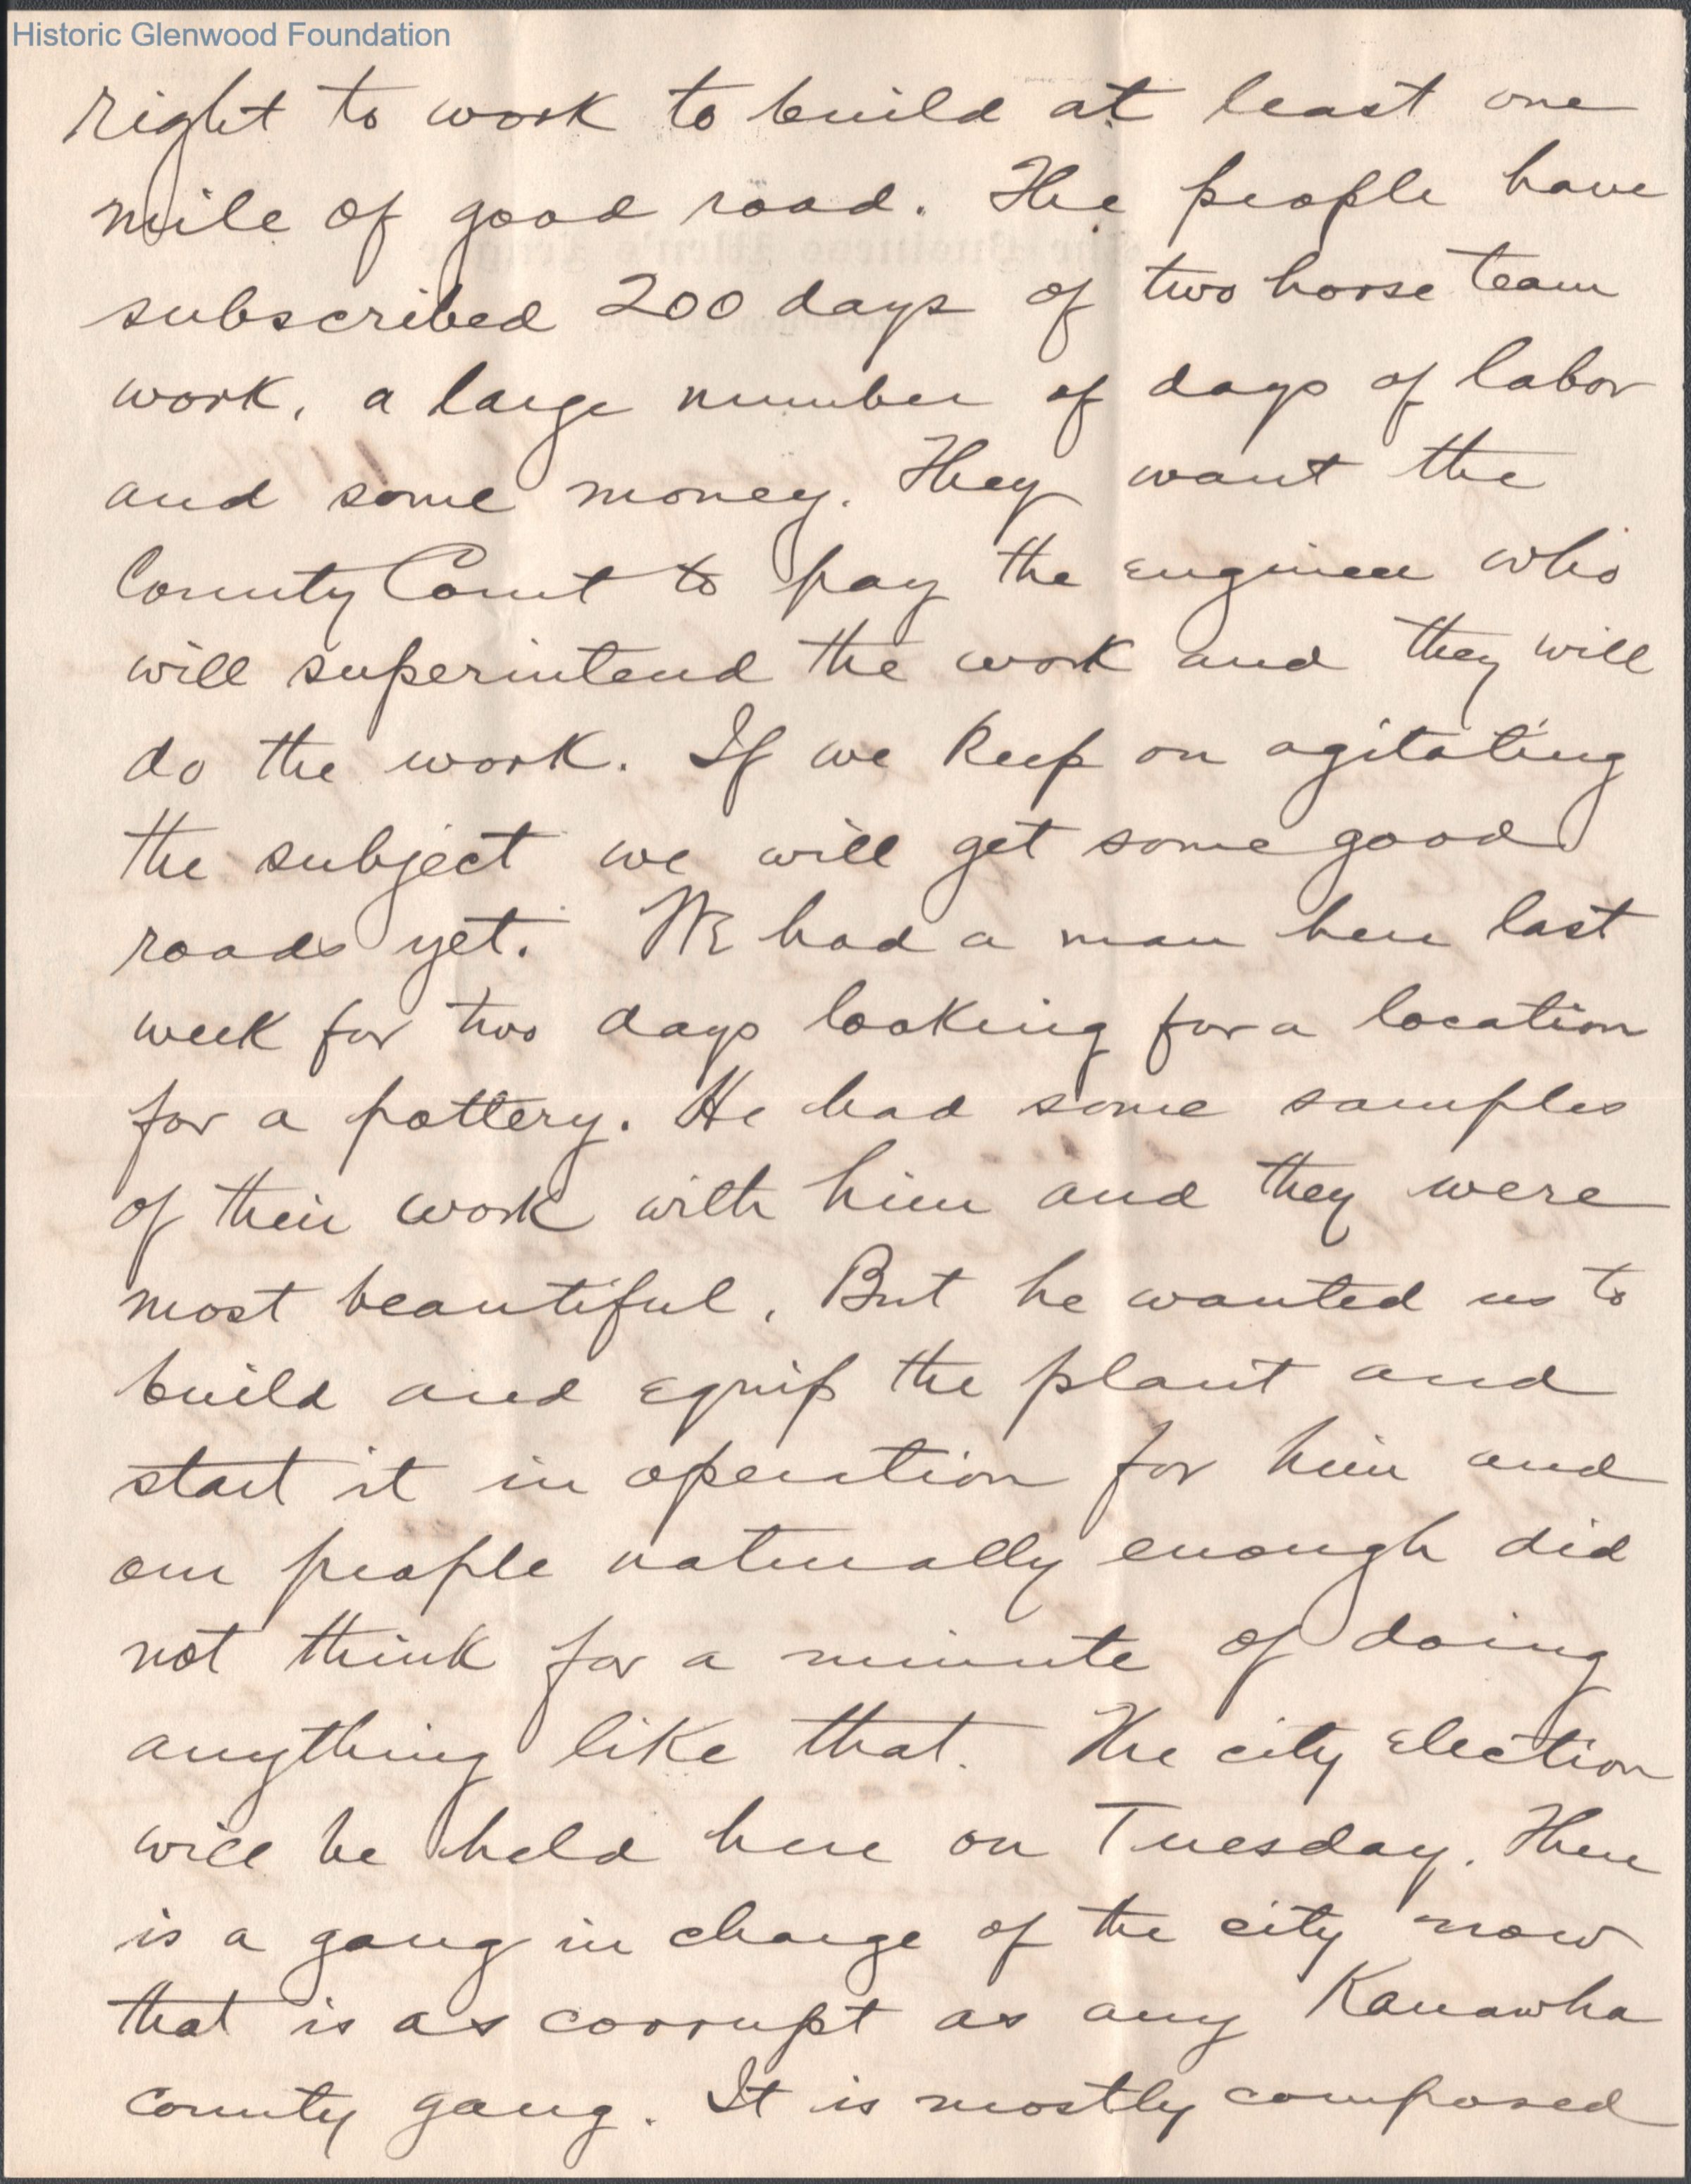 Historic Glenwood Foundation
right to work to build at least one
mile of good road. The people have
subscribed 200 days of two horse team
work, a large number of days of labor
and some money. They want the
County Court to pay the engineer who
will superintend the work and they will
do the work. If we keep on agitating
the subject we will get some good
roads yet. We had a man here last
week for two days looking for a location
for a pottery. He had some samples
of their work with him and they were
most beautiful. But he wanted us to
build and equip the plant and
start it in operation for him and
our people naturally enough did
not think for a minute of doing
anything like that. The city election
will be held here on Tuesday. There
is a gang in charge of the city now
that is as corrupt as any Kanawha
county gang. It is mostly composed